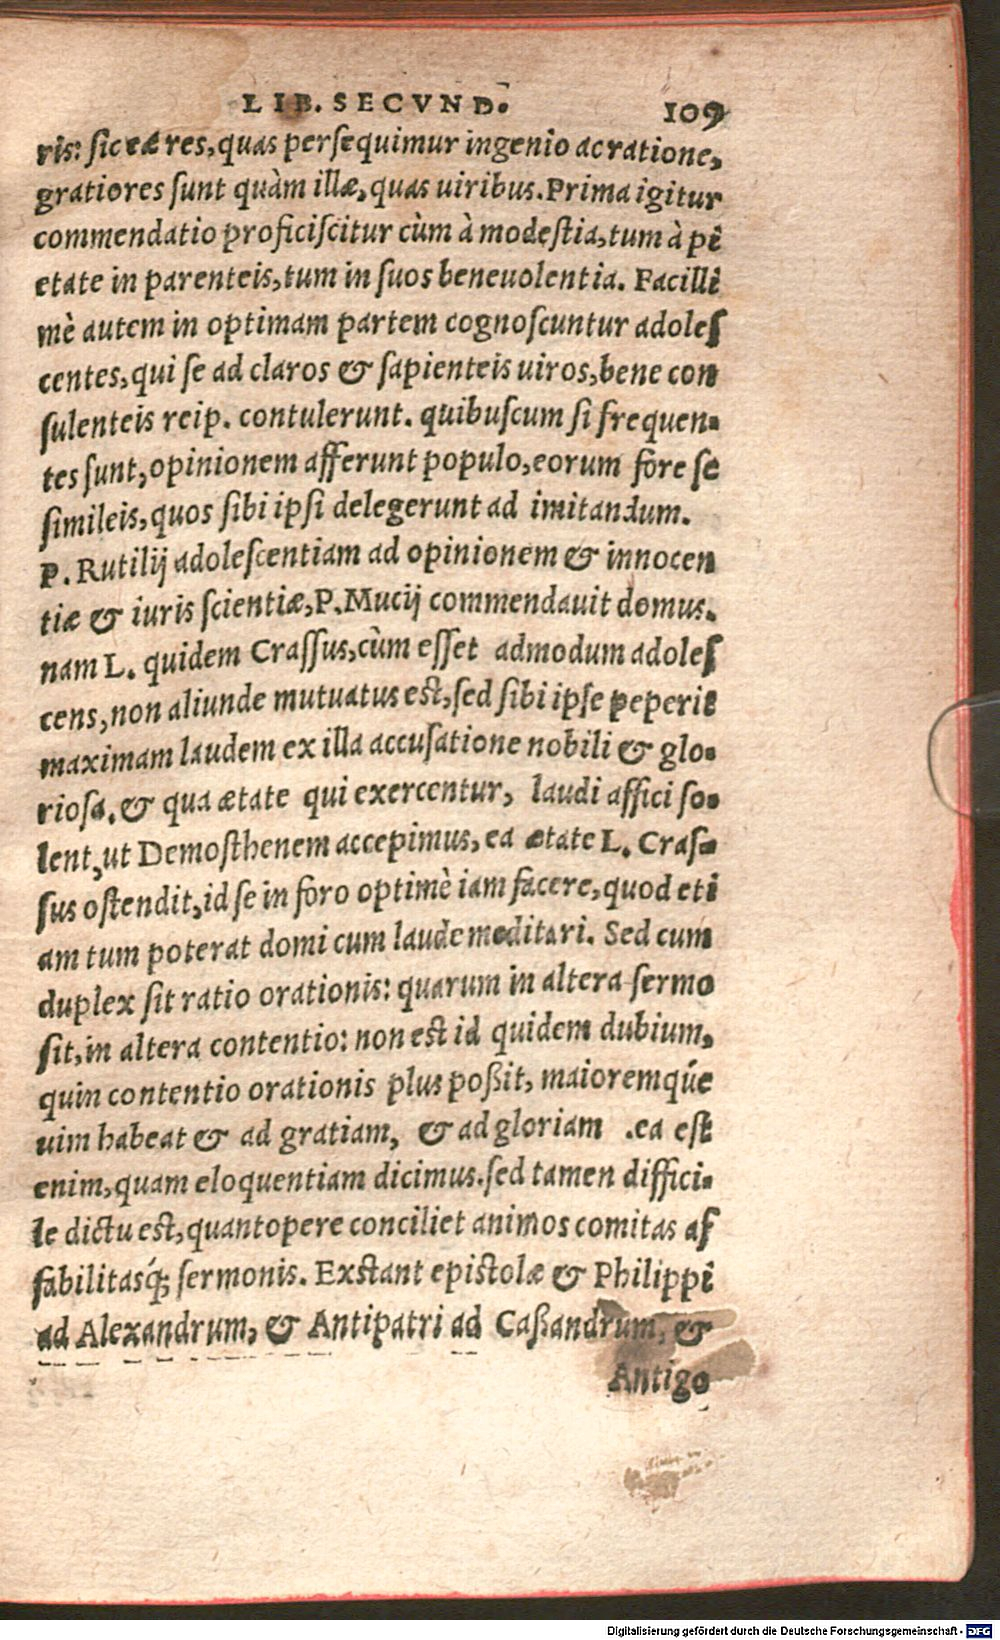 LIB. SECVND. 109
ris: sic eæ res, quas persequimur ingenio ac ratione,
gratiores sunt quàm illæ, quas uiribus. Prima igitur
commendatio proficiscitur cùm à modestia, tum à pi
etate in parenteis, tum in suos beneuolentia. Facilli
mè autem in optimam partem cognoscuntur adoles
centes, qui se ad claros & sapienteis uiros, bene con
sulenteis reip. contulerunt. quibuscum si frequen-
tes sunt, opinionem afferunt populo, eorum fore se
simileis, quos sibi ipsi delegerunt ad imitandum.
P. Rutilij adolescentiam ad opinionem & innocen
tiæ & iuris scientiæ, P. Mucij commendauit domus.
nam L. quidem Crassus, cùm esset admodum adoles
cens, non aliunde mutuatus est, sed sibi ipse peperit
maximam laudem ex illa accusatione nobili & glo-
riosa. & qua ætate qui exercentur, laudi affici so-
lent, ut Demosthenem accepimus, ea ætate L. Cras-
sus ostendit, id se in foro optimè iam facere, quod eti
am tum poterat domi cum laude meditari. Sed cum
duplex sit ratio orationis: quarum in altera sermo
sit, in altera contentio: non est id quidem dubium,
quin contentio orationis plus poßit, maioremq́ue
uim habeat & ad gratiam, & ad gloriam .ea est
enim, quam eloquentiam dicimus. sed tamen diffici-
le dictu est, quantopere conciliet animos comitas af
fabilitasq́; sermonis. Exstant epistolæ & Philippi
ad Alexandrum, & Antipatri ad Caßandrum, &
Antigo
Digitalisierung gefördert durch die Deutsche Forschungsgemeinschaft - DFG